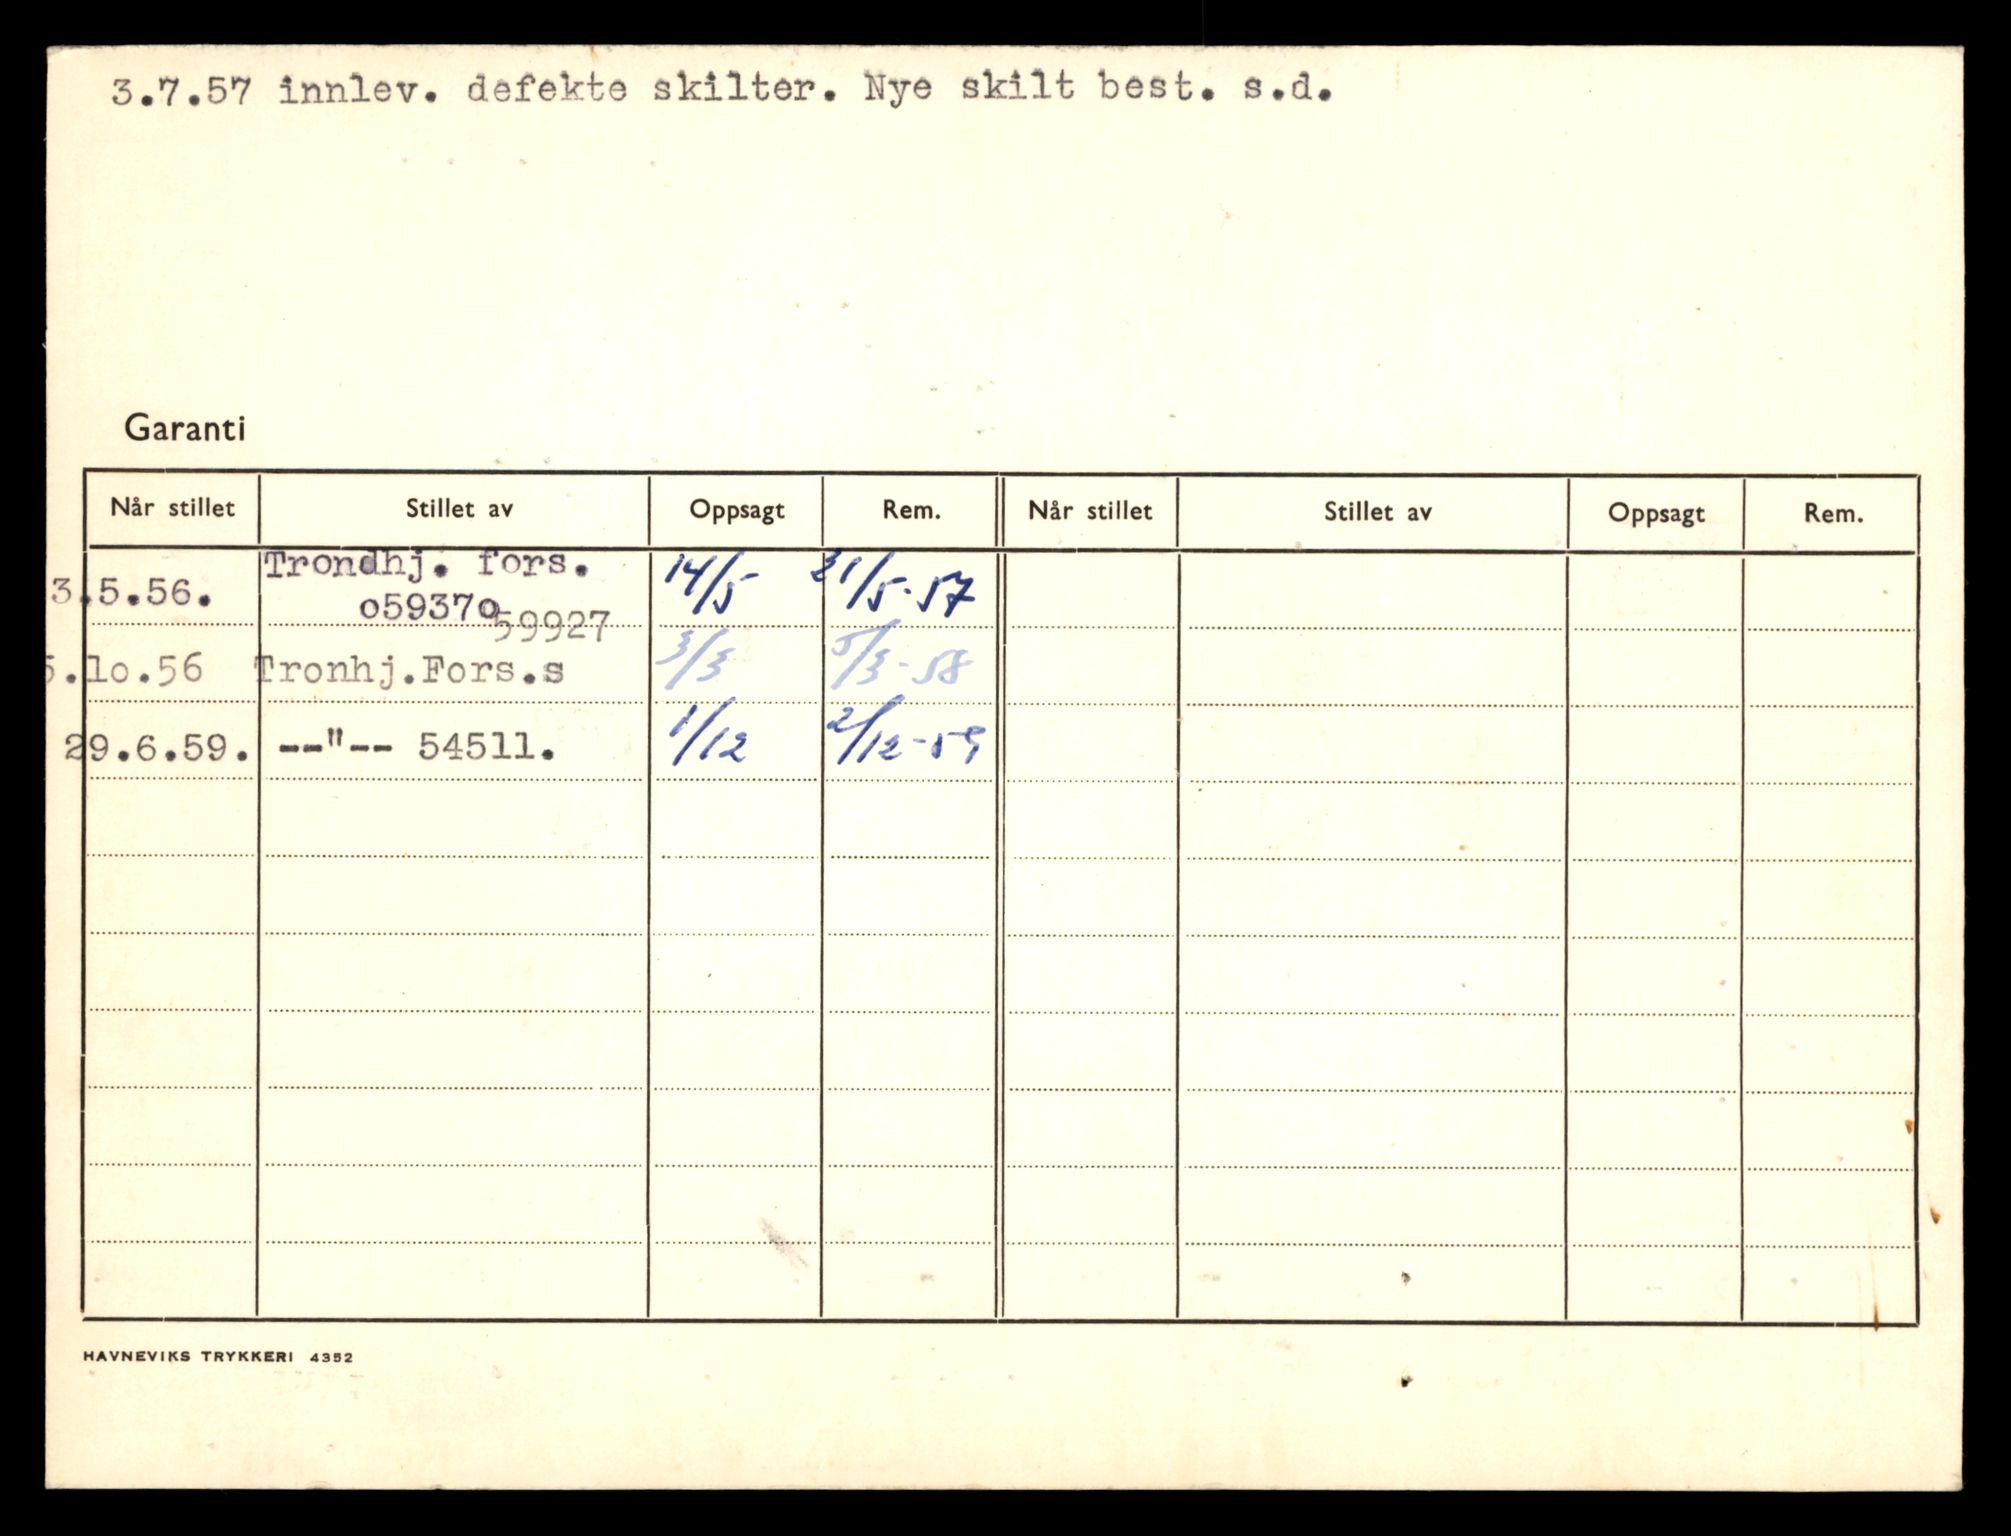 3.7.57 innlev. defekte skilter. Nye skilt best. s.d.
Garanti
Når stillet Stillet av Oppsagt Rem. Når stillet Stillet av Oppsagt Rem.
Trondhj. fors.
3.5.56. o5937o 14/5 21/5-57
59927
5.lo.56 Tronhj.Fors.s 3/3 5/3-58
29.6.59. --"-- 54511. 1/12 2/12-59
HAVNEVIKS TRYKKERI 4352